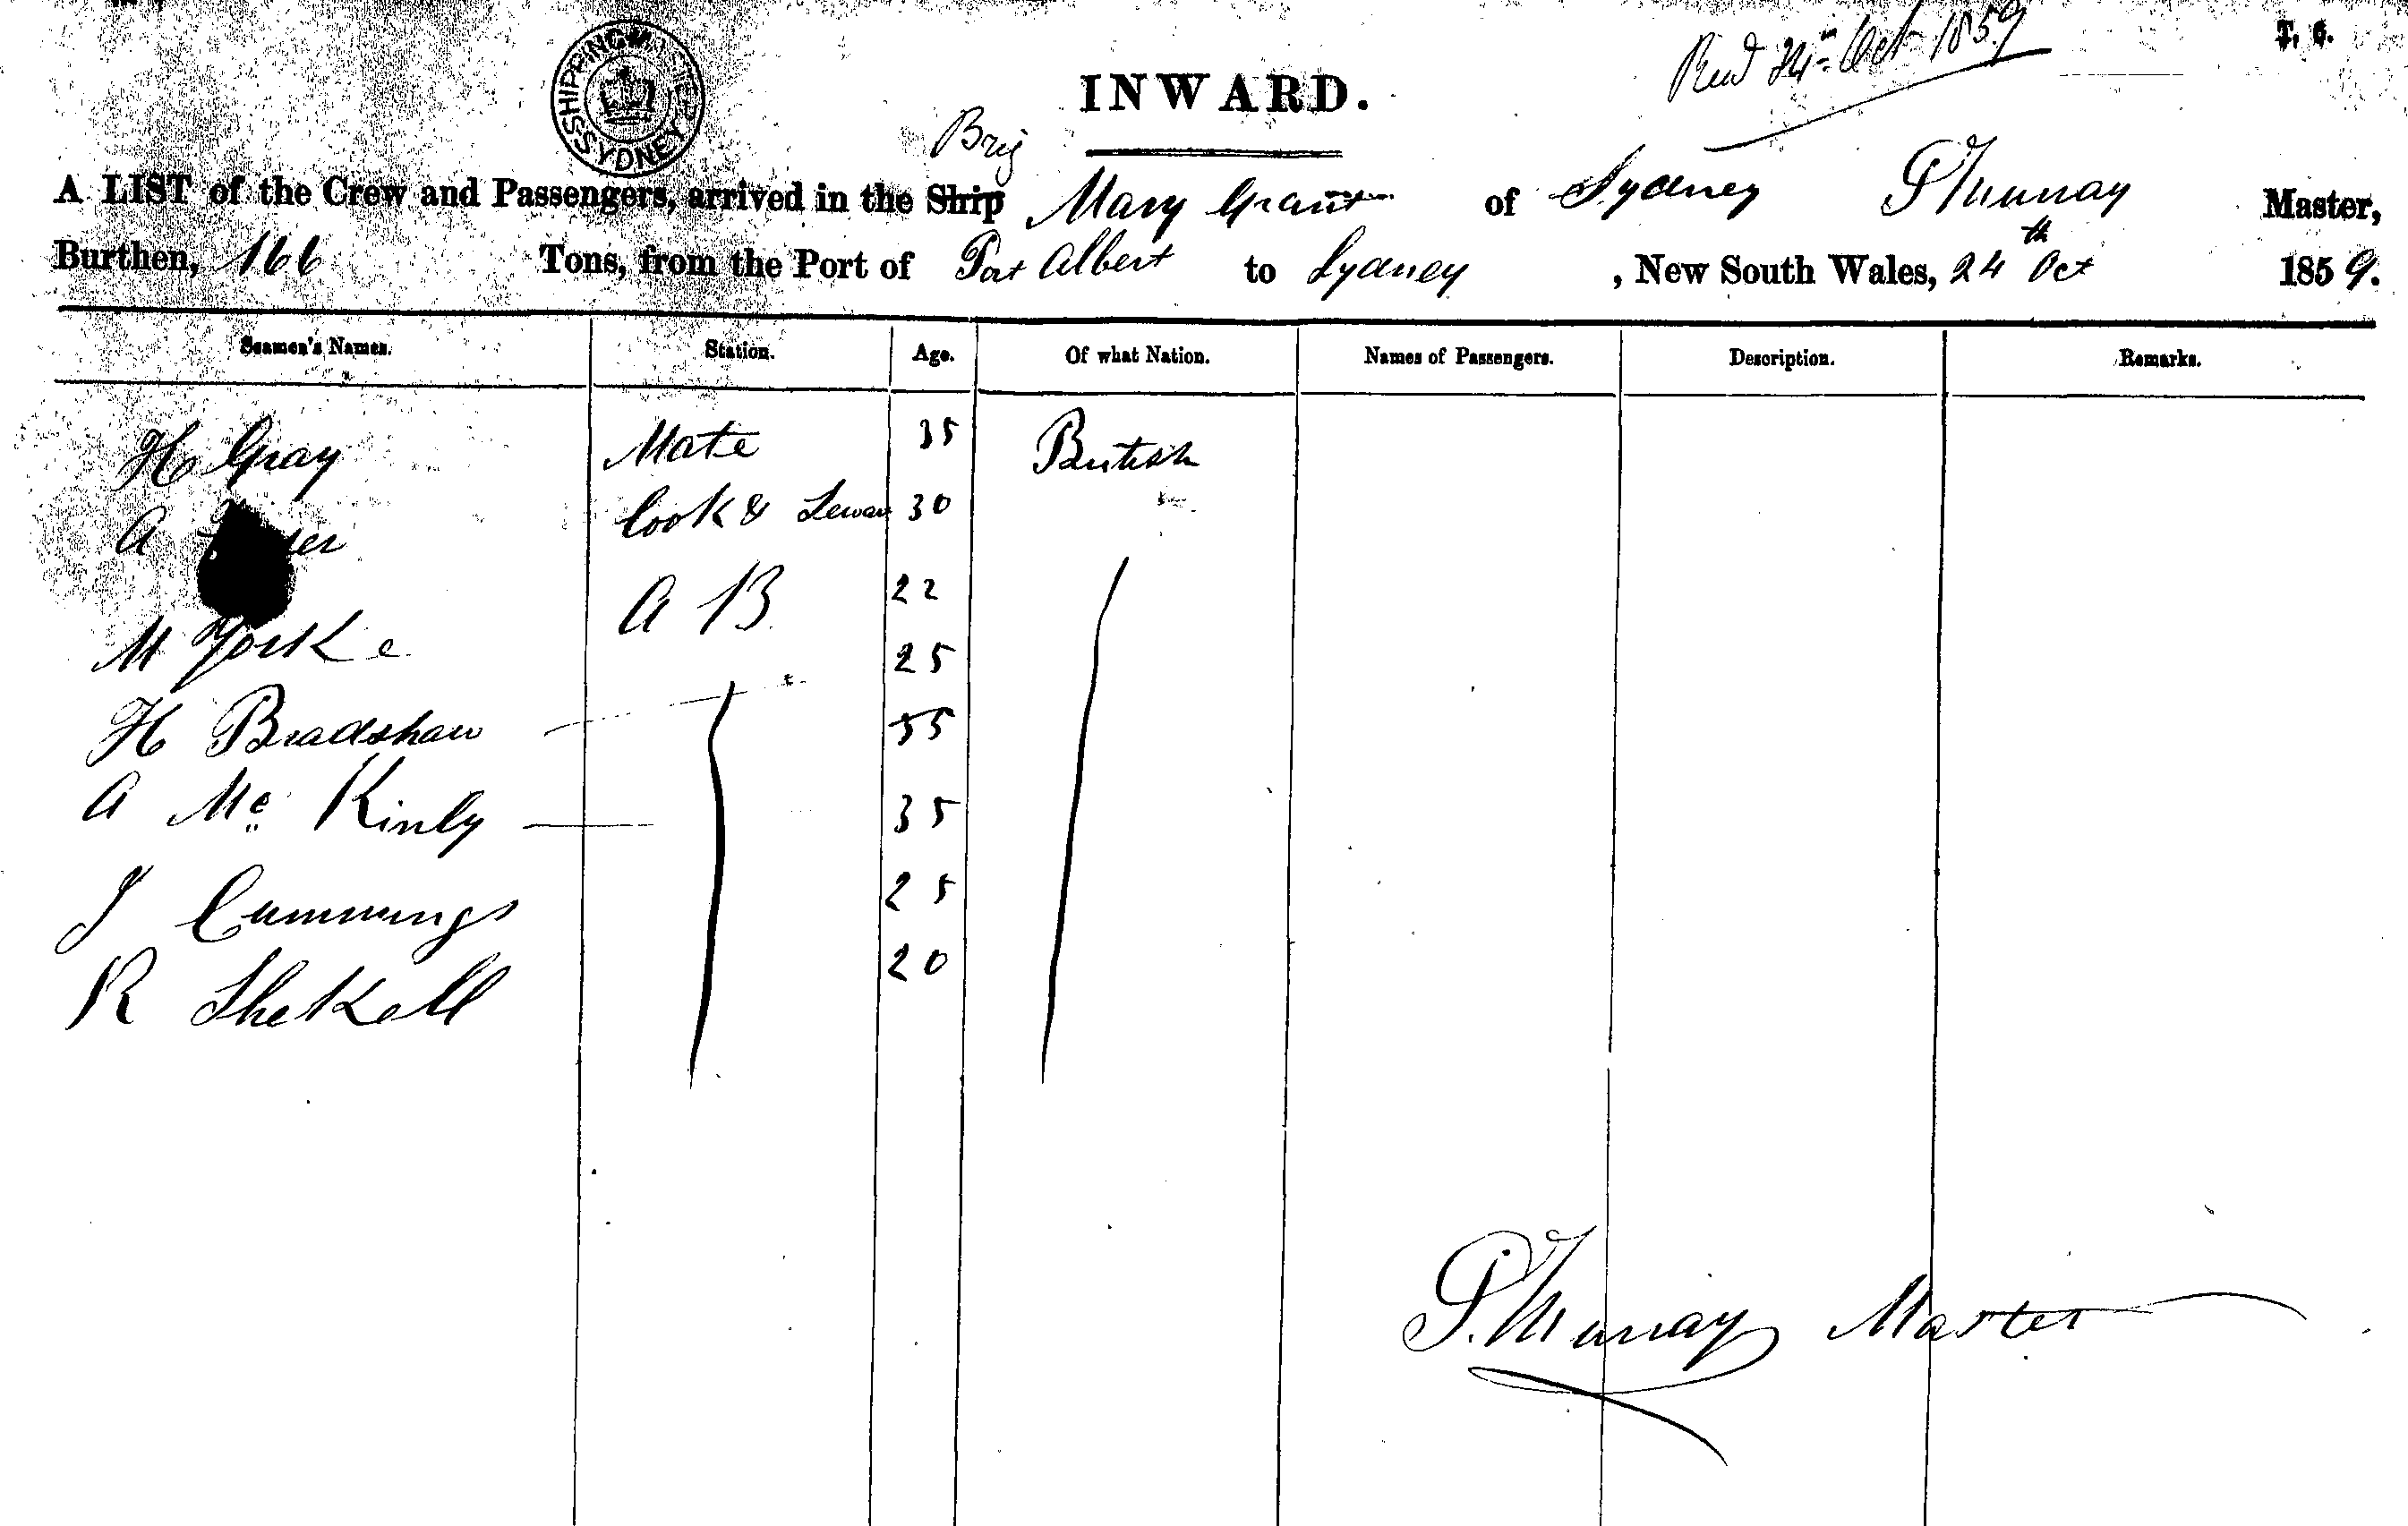 SHIPPING MASTERS SYDNEY
INWARD.
24th Oct 1859
T. 6.
Brig
A LIST of the Crew and Passengers, arrived in the Ship Mary Grant of Sydney P Murray Master,
Burthen, 166 Tons, from the Port of Port Albert to Sydney , New South Wales, 24th Oct 1859.
Seamen's Names. Station. Age. Of what Nation. Names of Passengers. Description. Remarks.
H Gray Mate 35 British
A Cook & 30
M Yorke A B 22
H Bradshaw 25
A Mc Kinly 35
J Cummings 25
R Shekell 20
P. Murray Master